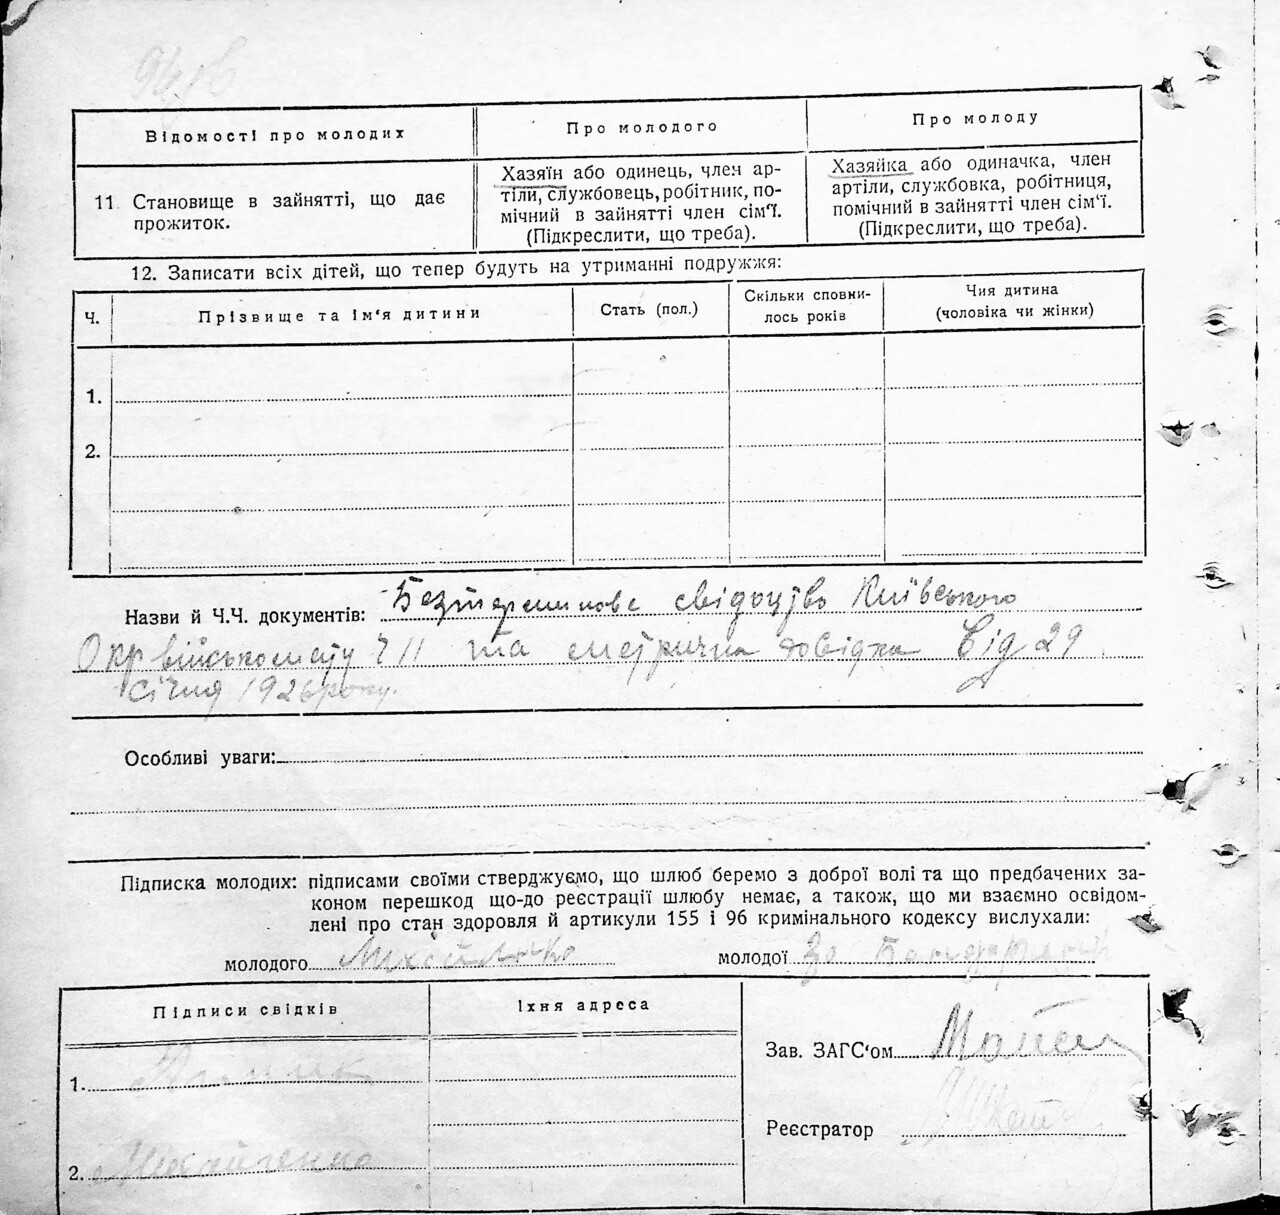 Відомості про молодих
Про молодого
Про молоду
11. Становище в зайнятті, що дає
прожиток.
Хазяїн або одинець, член ар-
тіли, службовець, робітник, по-
мічний в зайнятті член сім'ї.
(Підкреслити, що треба).
Хазяйка або одиначка, член
артіли, службовка, робітниця,
помічний в зайнятті член сім'ї.
(Підкреслити, що треба).
12. Записати всіх дітей, що тепер будуть на утриманні подружжя:
Ч.
Прізвище та ім'я дитини
Стать (пол.)
Скільки сповни-
лось років
Чия дитина
(чоловіка чи жінки)
1.
2.
Назви й Ч.Ч. документів: Безтерминове свідоцтво Київського
Окрвійськомату Ч 11 та метрична довідка від 29
січня 1926 року.
Особливі уваги:
Підписка молодих: підписами своїми стверджуємо, що шлюб беремо з доброї волі та що предбачених за-
коном перешкод що-до реєстрації шлюбу немає, а також, що ми взаємно освідом-
лені про стан здоровля й артикули 155 і 96 кримінального кодексу вислухали:
молодого
молодої за
Підписи свідків
Їхня адреса
1.
2. Михайленко
Зав. ЗАГС'ом
Реєстратор